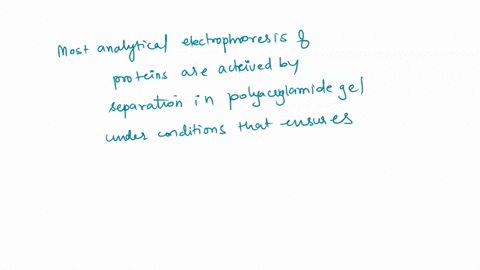 Most analytical electrophoresis of
proteins are acheived by
separation in polyacrylamide gel
under conditions that ensures